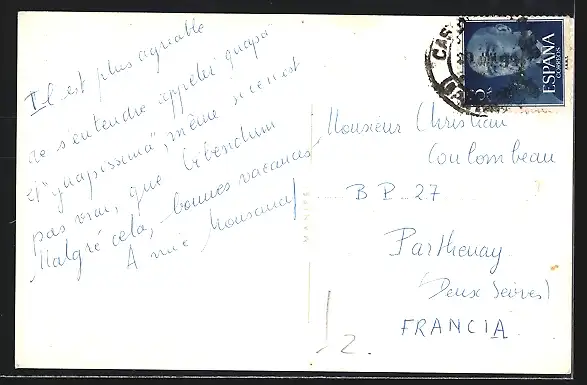 Il est plus agréable
de s'entendre appeler "guapa"
et "guapissima", même si c'en est
pas vrai, que bibendum
Malgré cela, bonnes vacances
A mie
Monsieur Christian
Coulombeau
B P 27
Parthenay
(Deux Sèvres)
FRANCIA
ESPAÑA
CORREOS
2.